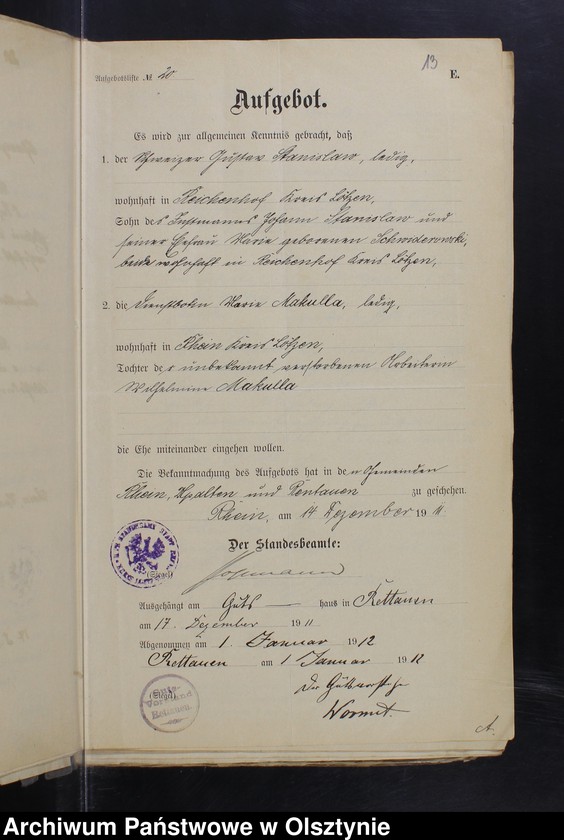 13
Aufgebotsliste № 20
E.
Aufgebot.
Es wird zur allgemeinen Kenntnis gebracht, daß
1. der Schweizer Gustav Stanislaw, ledig,
wohnhaft in Reichenhof Kreis Lötzen,
Sohn des Instmanns Johann Stanislaw und
seiner Ehefrau Marie geborenen
beide wohnhaft in Reichenhof Kreis Lötzen,
2. die Dienstbotin Marie Makulla, ledig,
wohnhaft in Rhein Kreis Lötzen,
Tochter der unbekannt verstorbenen Arbeiterin
Wilhelmine Makulla
die Ehe miteinander eingehen wollen.
Die Bekanntmachung des Aufgebots hat in den Gemeinden
Rhein, und zu geschehen.
Rhein, am 14 Dezember 1911
Der Standesbeamte:
(Siegel)
Ausgehängt am Guts — haus in Rettauen
am 17. Dezember 1911
Abgenommen am 1. Januar 1912
Rettauen am 1 Januar 1912
(Siegel)
Der Gutsvorsteher
A.
Archiwum Państwowe w Olsztynie